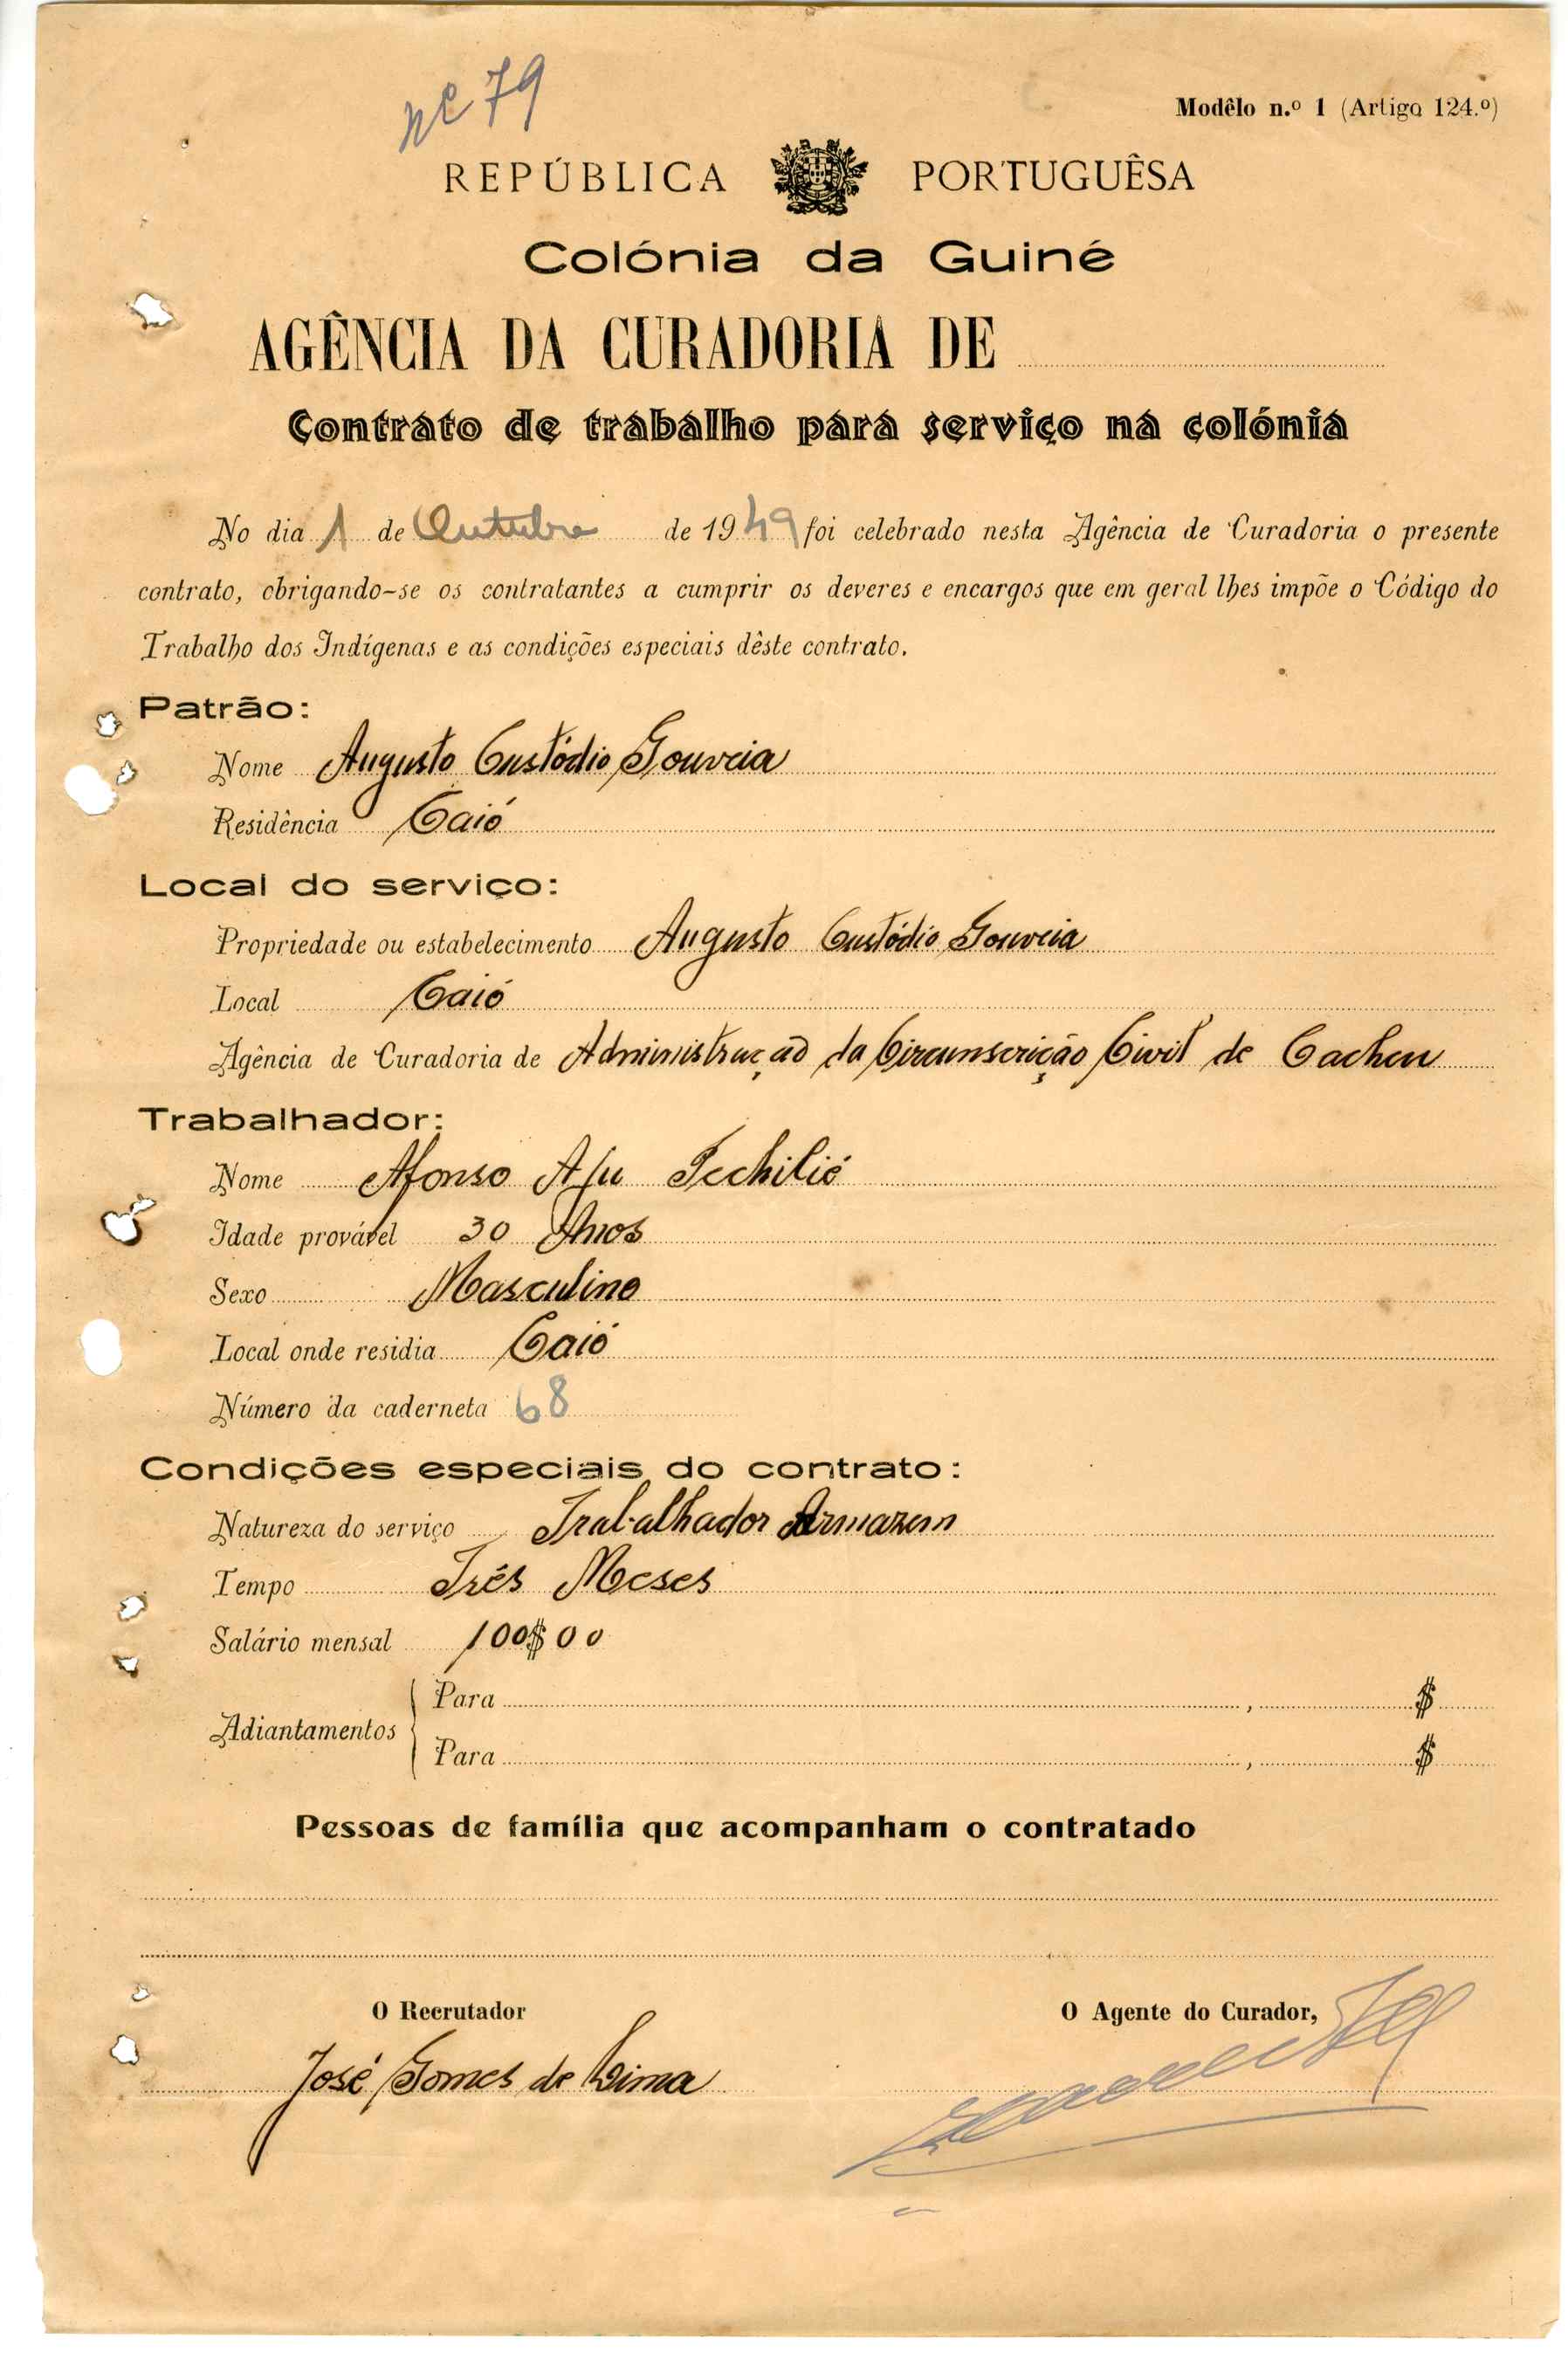 nº 79
Modêlo n.º 1 (Artigo 124.º)
REPÚBLICA PORTUGUÊSA
Colónia da Guiné
AGÊNCIA DA CURADORIA DE
Contrato de trabalho para serviço na colónia
No dia 1 de Outubro de 1949 foi celebrado nesta Agência de Curadoria o presente
contrato, obrigando-se os contratantes a cumprir os deveres e encargos que em geral lhes impõe o Código do
Trabalho dos Indígenas e as condições especiais dêste contrato.
Patrão:
Nome Augusto Custódio Gouveia
Residência Caió
Local do serviço:
Propriedade ou estabelecimento Augusto Custódio Gouveia
Local Caió
Agência de Curadoria de Administração da Circunscrição Civil de Cacheu
Trabalhador:
Nome Afonso
Idade provável 30 Anos
Sexo Masculino
Local onde residia Caió
Número da caderneta 68
Condições especiais do contrato:
Natureza do serviço Trabalhador Armazem
Tempo Três Meses
Salário mensal 100$00
Adiantamentos
Para , $
Para , $
Pessoas de família que acompanham o contratado
O Recrutador O Agente do Curador,
José Gomes de Lima